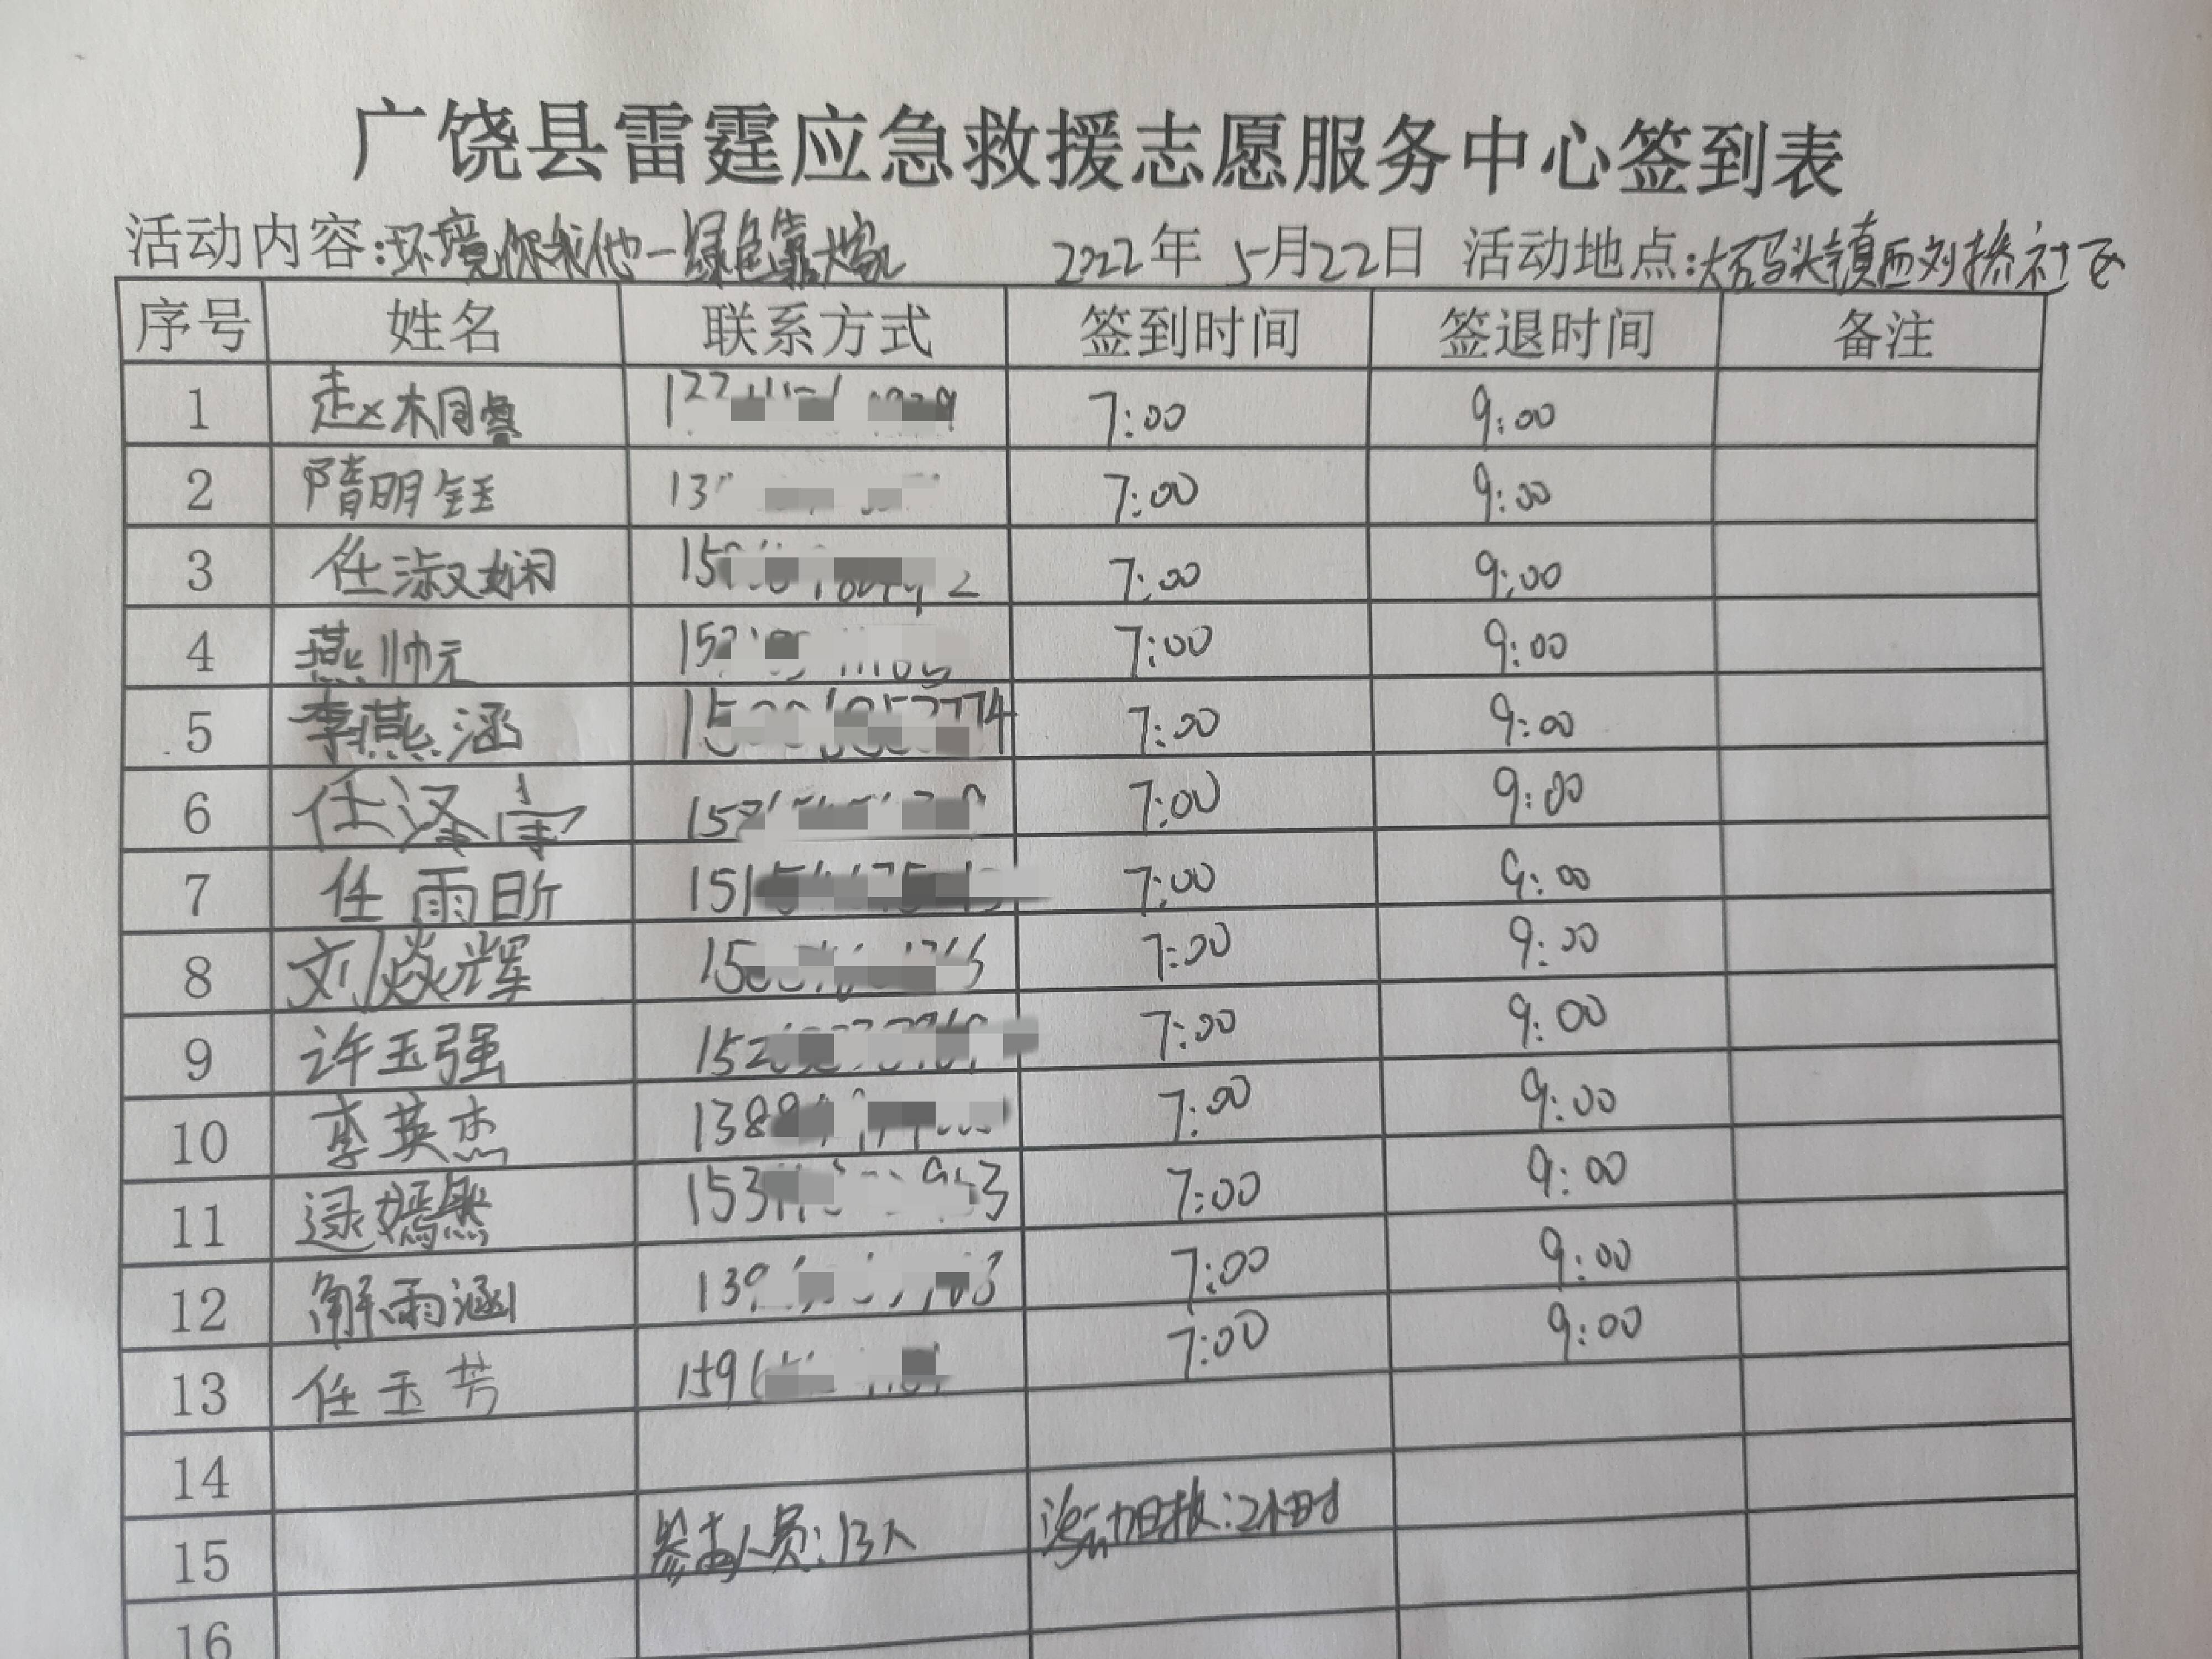 广饶县雷霆应急救援志愿服务中心签到表
活动内容:环境你我他一绿色靠大家 2022年 5月22日 活动地点:大码头镇西刘桥社区
序号 姓名 联系方式 签到时间 签退时间 备注
1 赵桐睿 7:00 9:00
2 隋明钰 13 7:00 9:00
3 任淑娴 15 7:00 9:00
4 燕帅元 15 7:00 9:00
5 李燕涵 15 7:00 9:00
6 任泽 15 7:00 9:00
7 任雨昕 151 7:00 9:00
8 刘焱辉 15 7:00 9:00
9 许玉强 152 7:00 9:00
10 李英杰 138 7:00 9:00
11 逯嫣然 153 7:00 9:00
12 解雨涵 139 7:00 9:00
13 任玉芳 159 7:00 9:00
14
15 参与人员:13人 :2小时
16